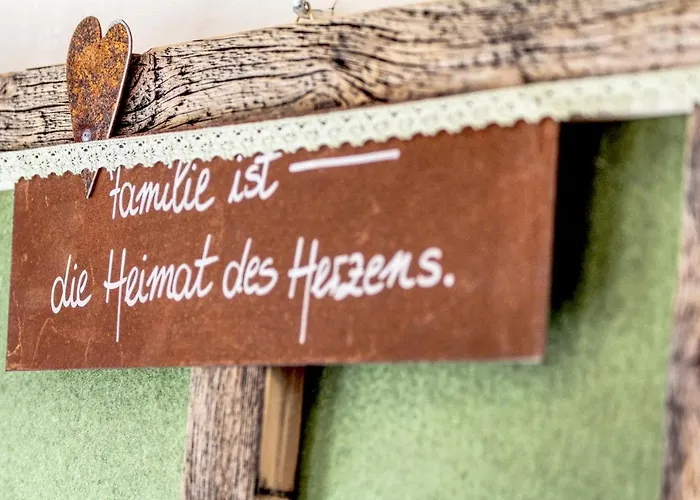 Familie ist —
die Heimat des Herzens.